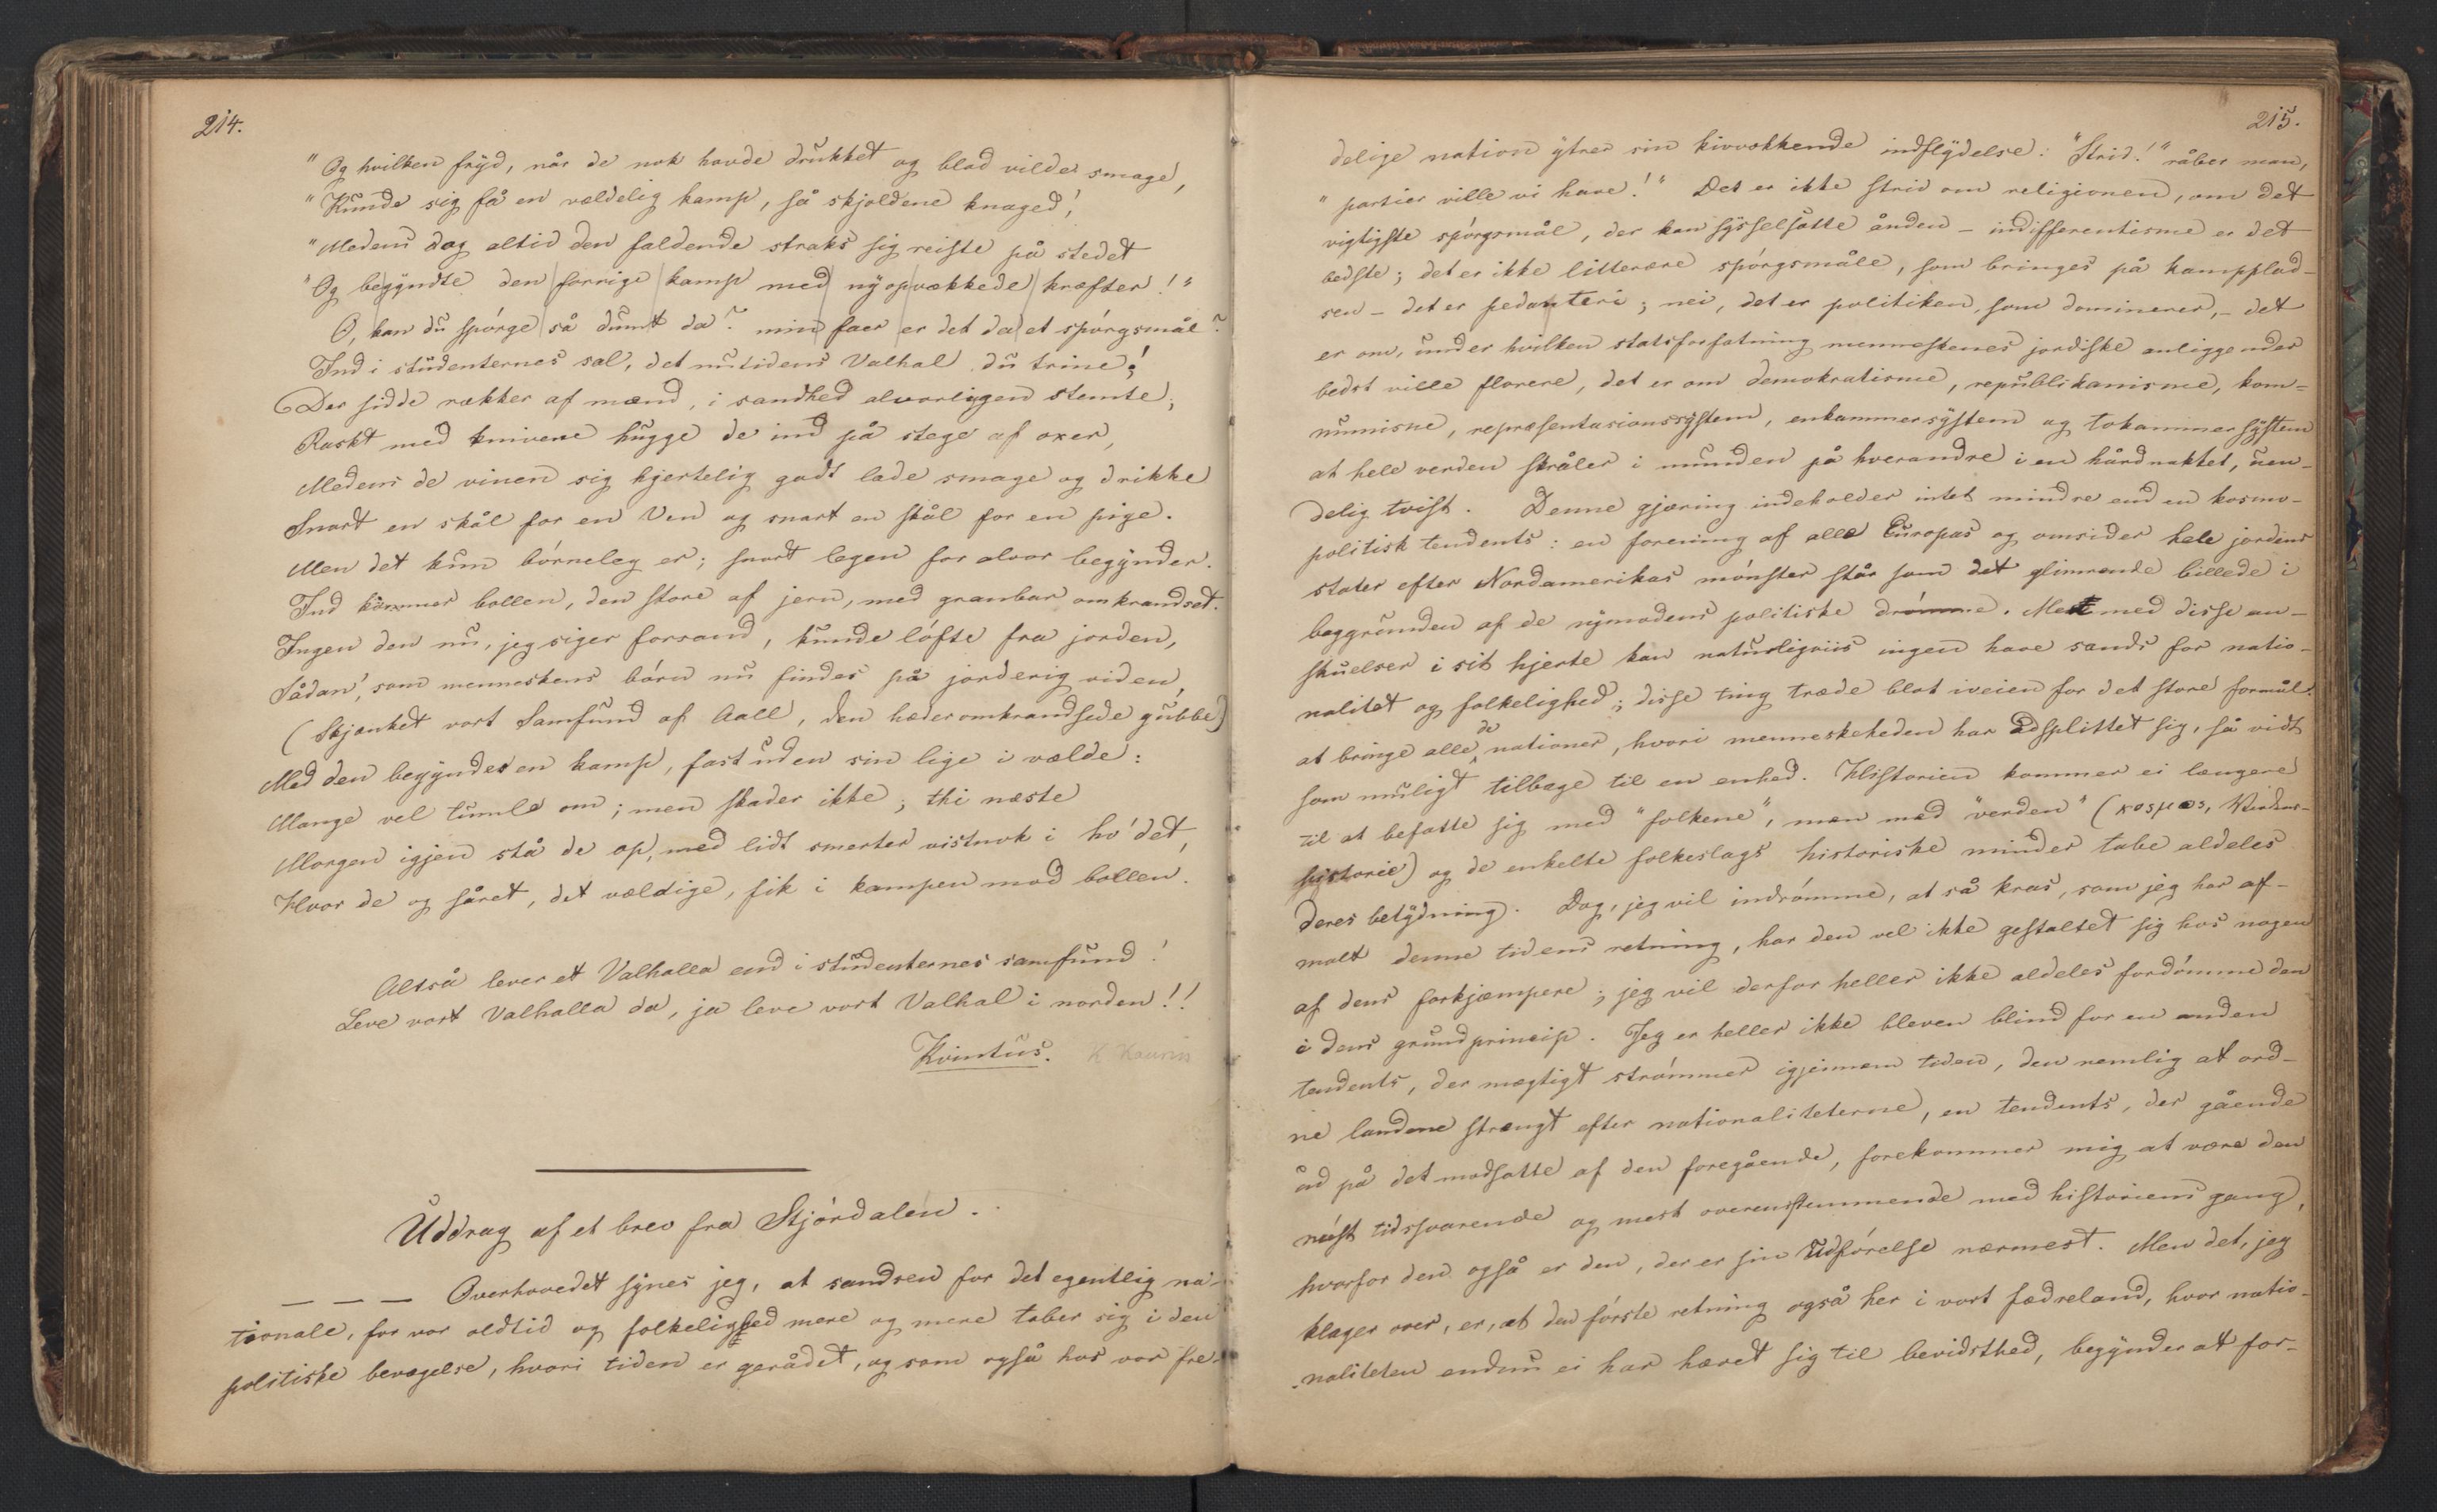 214.
"Og hvilken fryd, når de nok havde drukket og blod vilde smage,
"Kunde sig få en vældelig kamp, så skjoldene knaged!
"Medens dog altid den faldende straks sig reiste på stedet
"Og begyndte den forrige kamp med nyopvækkede kræfter!"
O, kan du spörge så dumt da? min faer er det da et spörgsmål?
Ind i studenternes sal, det nutidens Valhal du trine!
Der sidde rækker af mænd, i sandhed alvorligen stemte,
Raskt med knivene hugge de ind på stege af oxer,
Medens de vinen sig hjertelig godt lade smage og drikke
Snart en skål for en Ven og snart en skål for en pige.
Men det kun börneleg er; snart legen for alvor begynder.
Ind kommer bollen, den store af jern, med granbar omkrandset.
Ingen den nu, jeg siger forsand, kunde löfte fra jorden,
Sådan', som menneskens börn nu findes på jorderig viden,
(Skjænket vort Samfund af Aall, den hæderomkrandsede gubbe)
Med den begyndes en kamp, fast uden sin lige i vælde:
Mange vel tumle om; men skader ikke; thi næste
Morgen igjen stå de op, med lidt smerter vistnok i ho'det,
Hvor de og såret, det vældige, fik i kampen mod bollen.
Altså lever et Valhalla end i studenternes samfund!
Leve vort Valhalla da, ja leve vort Valhal i norden!!
Kvintus. K Kaurin
Uddrag af et brev fra Stjördalen.
— — — Overhovedet synes jeg, at sandsen for det egentlig na-
tionale, for vor oldtid og folkelighed mere og mere taber sig i den
politiske bevægelse, hvori tiden er gerådet, og som også hos vor fre-
215.
delige nation ytrer sin kivvækkende indflydelse: "Strid!" råber man,
"partier ville vi have!" Det er ikke strid om religionen, om det
vigtigste spörgsmål, der kan sysselsætte ånden – indifferentisme er det
bedste; det er ikke litterære spörgsmåle, som bringes på kampplad-
sen – det er pedanteri; nei, det er politiken, som dominerer, – det
er om, under hvilken statsforfatning menneskenes jordiske anliggender
bedst ville florere, det er om demokratisme, republikanisme, kom-
munisme, repræsentasionssystem, enkammersystem og tokammersystem
at hele verden skråler i munden på hverandre i en hårdnakket, uen-
delig tvist. Denne gjæring indeholder intet mindre end en kosmo-
politisk tendents: en forening af alle Europas og omsider hele jordens
stater efter Nordamerikas mönster står som det glimrende billede i
baggrunden af de nymodens politiske drömme. Med disse an-
skuelser i sit hjerte kan naturligviis ingen have sands for natio-
nalitet og folkelighed; disse ting træde blot iveien for det store formål:
at bringe alle de nationer, hvori menneskeheden har adsplittet sig, så vidt
som muligt tilbage til en enhed. Historien kommer ei længere
til at befatte sig med "folkene", men med "verden" (κοσμος, Verdens-
historie) og de enkelte folkeslags historiske minder tabe aldeles
deres betydning. Dog, jeg vil indrömme, at så kras, som jeg har af-
malt denne tidens retning, har den vel ikke gestaltet sig hos nogen
af dens forkjæmpere; jeg vil derfor heller ikke aldeles fordömme den
i dens grundprincip. Jeg er heller ikke bleven blind for en anden
tendents, der mægtigt strömmer igjennem tiden, den nemlig at ord-
ne landene strengt efter nationaliteterne, en tendents, der gående
ud på det modsatte af den foregående, forekommer mig at være den
meest tidssvarende og mest overensstemmende med historiens gang,
hvorfor den også er den, der er sin Udförelse nærmest. Men det, jeg
klager over, er, at den förste retning også her i vort fædreland, hvor natio-
naliteten endnu ei har hævet sig til bevidsthed, begynder at for-